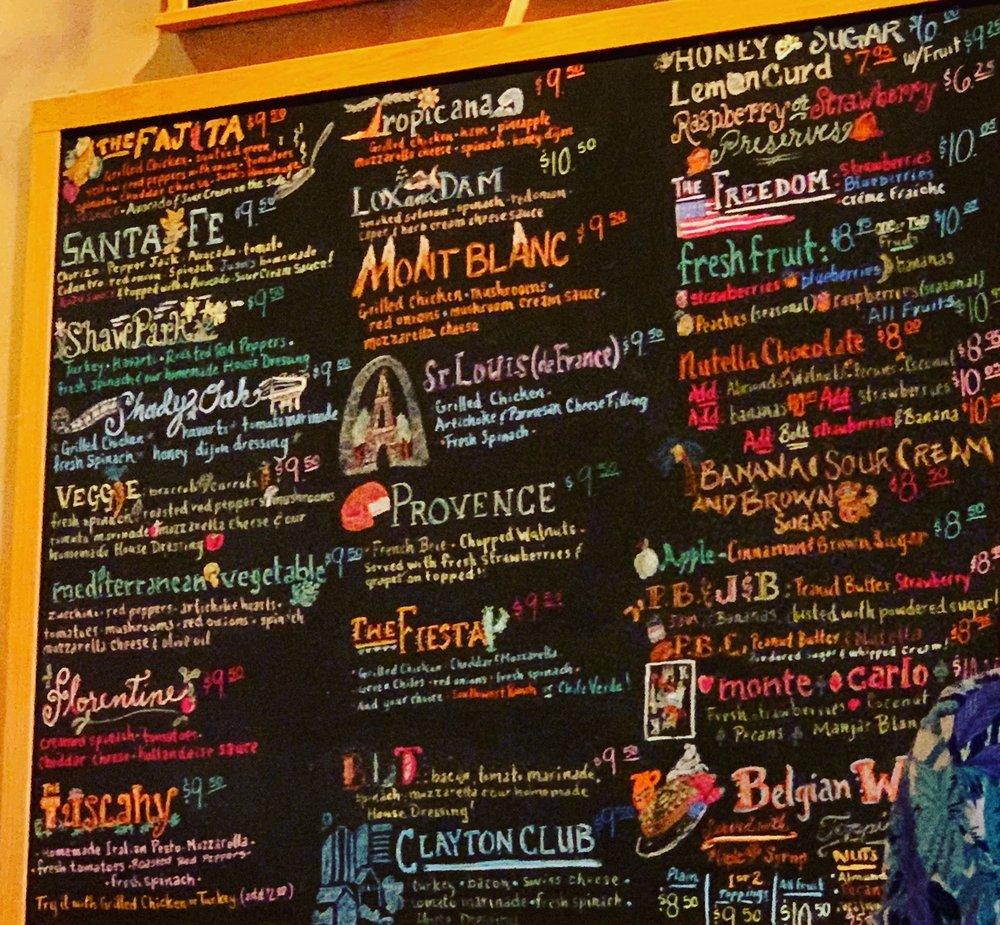 THE FAJITA $9.50
Grilled Chicken · sauteed green
yellow, red peppers with onions · Tomatoes
spinach, cheddar cheese
Avocado & Sour Cream on the side!
SANTA FE $9.50
Chorizo, Pepper Jack, Avocado, tomato
Cilantro, red onion, Spinach, homemade
& topped with Avocado & Sour Cream Sauce!
Shaw Park $9.50
Turkey · Havarti · Roasted Red Peppers ·
fresh spinach & our homemade House Dressing
Shady Oak $9.50
Grilled Chicken · havarti · tomato marinade
fresh Spinach · honey dijon dressing
VEGGIE $9.50 : broccoli · carrots
fresh spinach · roasted red peppers · mushrooms
tomato marinade mozzarella cheese & our
homemade House Dressing
mediterranean vegetable $9.50
zucchini · red peppers · artichoke hearts ·
tomatoes · mushrooms · red onions · spinach
mozzarella cheese & olive oil
Florentine $9.50
creamed spinach · tomatoes ·
cheddar cheese · hollandaise sauce
THE TUSCANY $9.50
Homemade Italian Pesto · Mozzarella ·
fresh tomatoes · Roasted Red Peppers ·
· fresh spinach ·
Try it with Grilled Chicken or Turkey (add 2.50)
Tropicana $9.50
Grilled chicken · ham · pineapple
mozzarella cheese · spinach · honey dijon
LOX and DAM $10.50
smoked salmon · spinach · red onion ·
caper & herb cream cheese sauce
MONT BLANC $9.50
Grilled chicken · mushrooms ·
red onions · mushroom cream sauce ·
mozzarella cheese
ST. LOUIS (de France) $9.50
Grilled Chicken ·
Artichoke & Parmesan Cheese Filling
· Fresh Spinach ·
PROVENCE $9.50
· French Brie · Chopped Walnuts ·
served with fresh strawberries &
grapes on topped!
THE FIESTA $9.50
· Grilled Chicken · Cheddar & Mozzarella
Green Chiles · red onions · fresh spinach ·
And your choice · Southwest Ranch or Chile Verde!
B.L.T. : bacon, tomato marinade, $9.50
spinach · mozzarella & our homemade
House Dressing!
CLAYTON CLUB
turkey · bacon · swiss cheese ·
tomato marinade · fresh spinach ·
House Dressing
HONEY SUGAR $6.00
Lemon Curd $7.95 w/Fruit $9.25
Raspberry or Strawberry $6.25
Preserves
THE FREEDOM : Strawberries $10.
Blueberries
Crème Fraiche
fresh fruit: $8.95 one or Two Fruits $10.
strawberries blueberries bananas
Peaches (seasonal) raspberries (seasonal)
All Fruits $10.
Nutella Chocolate $8.00
Add Almonds Walnuts Pecans Coconut
Add bananas Add strawberries
Add Both strawberries & Banana $10.50
BANANA SOUR CREAM
AND BROWN $8.50
SUGAR
Apple - Cinnamon & Brown Sugar $8.50
P.B. & J & B : Peanut Butter, Strawberry
Jam, Bananas, dusted with powdered sugar!
P.B.C. Peanut Butter & Nutella
Powdered Sugar & whipped cream!
monte carlo
Fresh strawberries Coconut
Pecans Manjar Blan
Belgian W
Plain
$8.50
1 or 2
Toppings
$9.50
All Fruit
$10.50
NUTS
Almond
Pecan